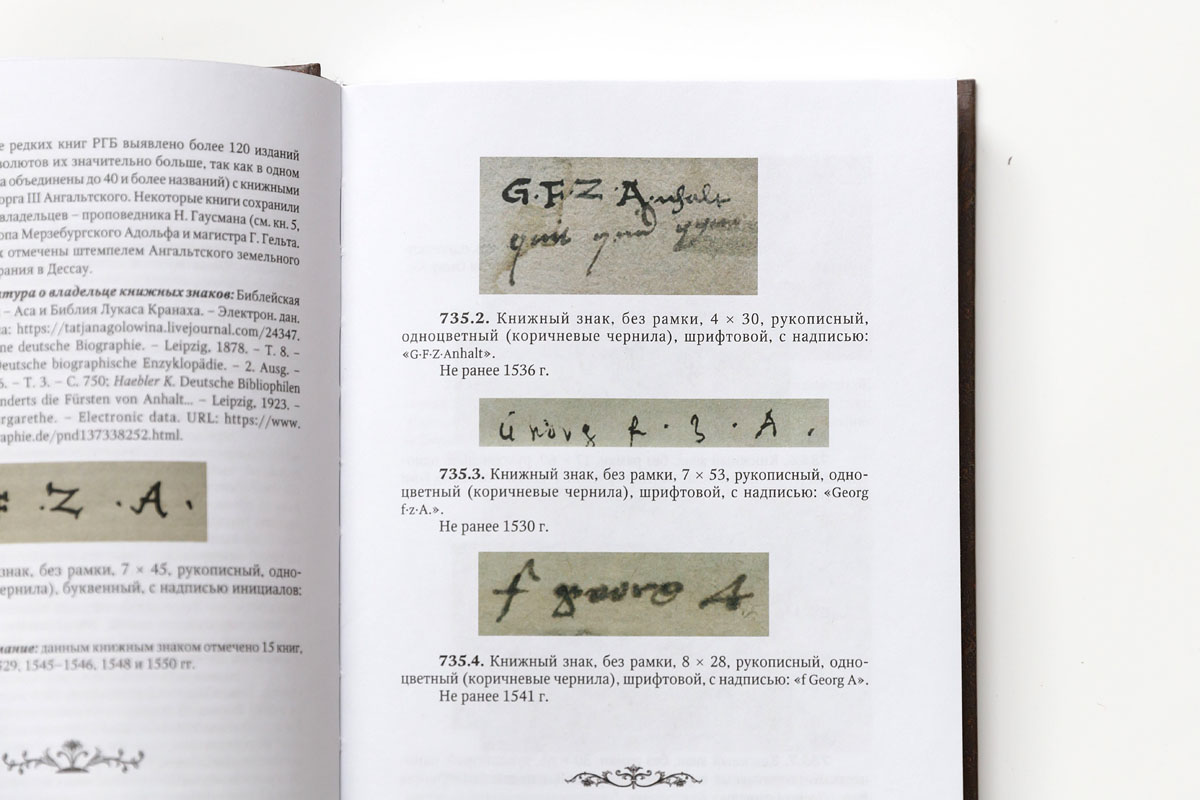 е редких книг РГБ выявлено более 120 изданий
олютов их значительно больше, так как в одном
а объединены до 40 и более названий) с книжными
орга III Ангальтского. Некоторые книги сохранили
владельцев – проповедника Н. Гаусмана (см. кн. 5,
опа Мерзебургского Адольфа и магистра Г. Гельта.
к отмечены штемпелем Ангальтского земельного
рания в Дессау.
тура о владельце книжных знаков: Библейская
– Аса и Библия Лукаса Кранаха. – Электрон. дан.
а: https://tatjanagolowina.livejournal.com/24347.
ne deutsche Biographie. – Leipzig, 1878. – T. 8. –
Deutsche biographische Enzyklopädie. – 2. Ausg. –
6. – T. 3. – C. 750; Haebler K. Deutsche Bibliophilen
nderts die Fürsten von Anhalt... – Leipzig, 1923. –
rgarethe. – Electronic data. URL: https://www.
aphie.de/pnd137338252.html.
. Z . A .
знак, без рамки, 7 × 45, рукописный, одно-
ернила), буквенный, с надписью инициалов:
мание: данным книжным знаком отмечено 15 книг,
529, 1545–1546, 1548 и 1550 гг.
G·F·Z·Anhalt
735.2. Книжный знак, без рамки, 4 × 30, рукописный,
одноцветный (коричневые чернила), шрифтовой, с надписью:
«G·F·Z·Anhalt».
Не ранее 1536 г.
f · z · A .
735.3. Книжный знак, без рамки, 7 × 53, рукописный, одно-
цветный (коричневые чернила), шрифтовой, с надписью: «Georg
f·z·A.».
Не ранее 1530 г.
f georg A
735.4. Книжный знак, без рамки, 8 × 28, рукописный, одно-
цветный (коричневые чернила), шрифтовой, с надписью: «f Georg A».
Не ранее 1541 г.